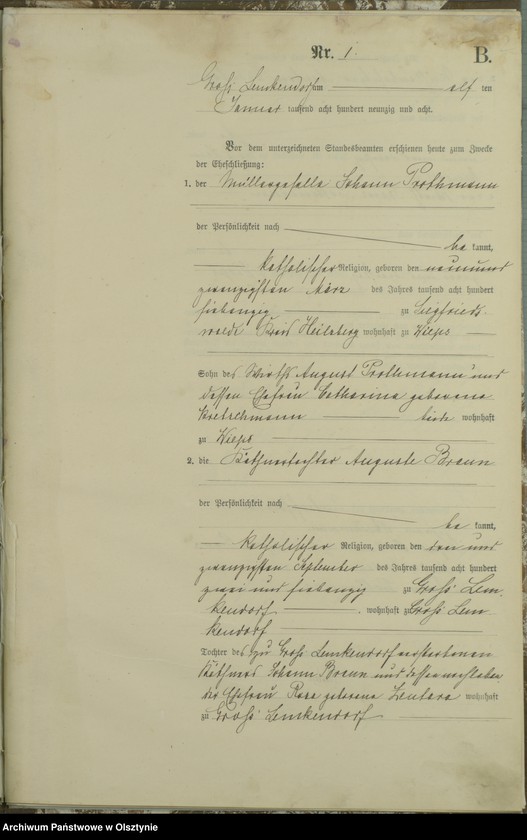 Nr. 1.
B.
Groß Lemkendorf am elf ten
Januar tausend acht hundert neunzig und acht.
Vor dem unterzeichneten Standesbeamten erschienen heute zum Zwecke
der Eheschließung:
1. der Müllergeselle Johann Prothmann
der Persönlichkeit nach
be kannt,
katholischer Religion, geboren den neunund
zwanzigsten März des Jahres tausend acht hundert
siebenzig zu Siegfrieds-
walde Kreis Heilsberg wohnhaft zu Wieps
Sohn des Wirths August Prothmann und
dessen Ehefrau Catharina geborene
Kretschmann beide wohnhaft
zu Wieps
2. die Käthnertochter Auguste Braun
der Persönlichkeit nach
be kannt,
katholischer Religion, geboren den drei und
zwanzigsten September des Jahres tausend acht hundert
zwei und siebenzig zu Groß Lem-
kendorf, wohnhaft zu Groß Lem-
kendorf
Tochter des zu Groß Lemkendorf verstorbenen
Käthners Johann Braun und dessen nachleben-
der Ehefrau Rosa geborene wohnhaft
zu Groß Lemkendorf
Archiwum Państwowe w Olsztynie